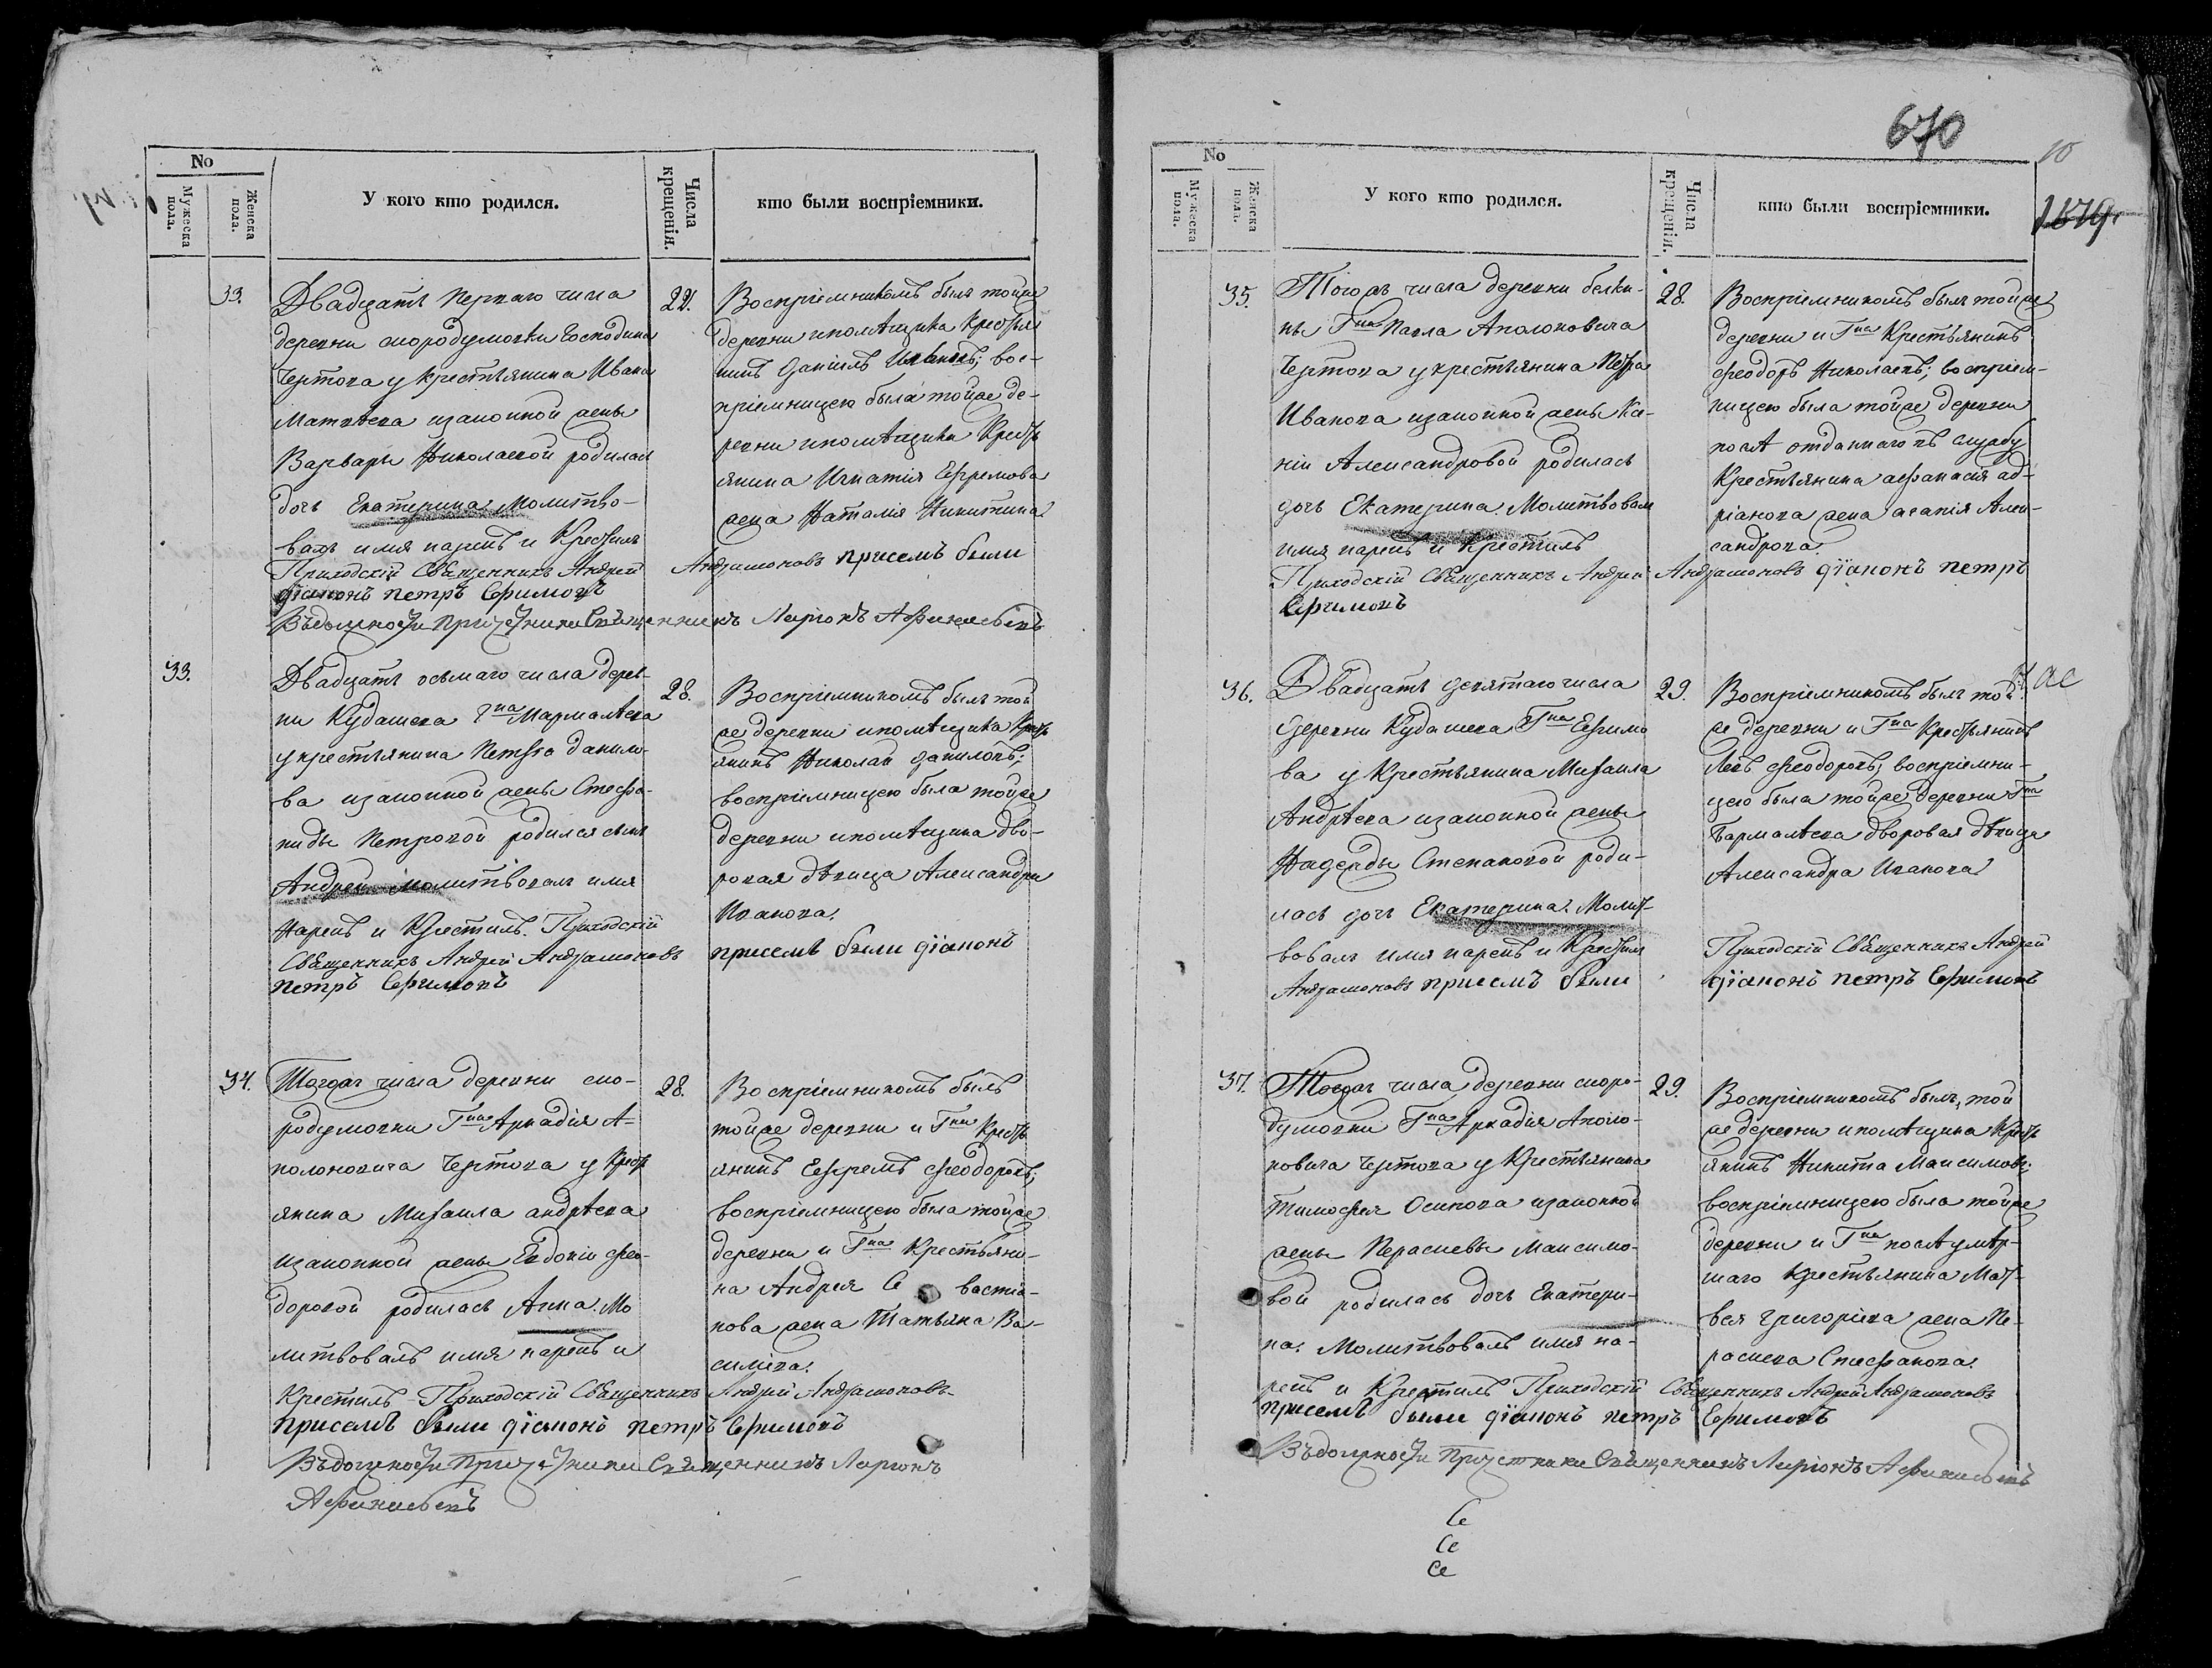 No
Мужеска пола.
Женска пола.
У кого кто родился.
Числа крещенія.
кто были воспріемники.
33.
Двадцать перваго числа
деревни смородумовки Господина
Чертова у крестьянина Ивана
Матвѣева изаконной жены
Варвары Николаевой родилась
дочь Екатерина. Молитво-
валъ имя нарекъ и Крестилъ
Приходскій Священникъ Андрей Андрамоновъ присемъ были
діаконъ петръ Ефимовъ
Въдолжности Причетника Священникъ Ларіонъ
22.
Воспріемникомъ былъ тойже
деревни ипомѣщика Крестья
нинъ Даніилъ Ивановъ; вос-
пріемницею была тойже де-
ревни ипомѣщика Кресть
янина Игнатія Ефремова
жена Наталія Никитина
33.
Двадцать осьмаго числа дерев-
ни Кудашева Гна Мармалѣева
укрестьянина Петра данило-
ва изаконной жены Стефа-
ниды Петровой родился сынъ
Андрей молитвовалъ имя
Нарекъ и Крестилъ. Приходскій
Священникъ Андрей Андрамоновъ
петръ Ефимовъ
28.
Воспріемникомъ былъ той
же деревни ипомѣщика Кресть
янинъ Николай Даниловъ;
воспріемницею была тойже
деревни ипомѣщика дво-
ровая дѣвица Александра
Иванова.
присемъ были діаконъ
34.
Тогожъ числа деревни смо-
родумовки Гна Аркадія А-
полоновича Чертова у Кресть
янина Михаила андрѣева
изаконной жены Евдокіи фео-
доровой родилась Анна. Мо
литвовалъ имя нарекъ и
Крестилъ Приходскій Священникъ Андрей Андрамоновъ
присемъ были діаконъ петръ Ефимовъ
Въдолжности Причетника Священникъ Ларіонъ
28.
Воспріемникомъ былъ
тойже деревни и Гна Кресть
янинъ Ефремъ феодоровъ;
воспріемницею была тойже
деревни и Гна Крестьяни-
на Андрея Се вастіа-
нова жена Татьяна Ва-
силіева.
670
10
1679.
No
Мужеска пола.
Женска пола.
У кого кто родился.
Числа крещенія.
кто были воспріемники.
35.
Тогожъ числа деревни белки-
ны Гна Павла Аполоновича
Чертова укрестьянина Петра
Иванова изаконной жены Ксе-
ніи Александровой родилась
дочь Екатерина. Молитвовалъ
имя нарекъ и Крестилъ
Приходскій Священникъ Андрей Андрамоновъ діаконъ петръ
Ефимовъ
28.
Воспріемникомъ былъ тойже
деревни и Гна Крестьянинъ
феодоръ Николаевъ; воспріем-
ницею была тойже деревни
послѣ отданнаго въ службу
Крестьянина афанасія ад-
ріанова жена агапія Алек-
сандрова.
36.
Двадцать девятаго числа
деревни Кудашева Гна Ефимо
ва у Крестьянина Михаила
Андрѣева изаконной жены
Надежды Степановой роди-
лась дочь Екатерина. Молит-
вовалъ имя нарекъ и Крестилъ
Андрамоновъ присемъ были
29.
Воспріемникомъ былъ той
же деревни и Гна Крестьянинъ
Левъ феодоровъ; воспріемни-
цею была тойже деревни Гна
Бармалѣева дворовая дѣвица
Александра Иванова
Приходскій Священникъ Андрей
діаконъ петръ Ефимовъ
37.
Тогожъ числа деревни сморо-
думовки Гна Аркадія Аполо-
новича Чертова у Крестьянина
Тимофея Осипова изаконной
жены Парасковьи Максимо-
вой родилась дочь Екатери-
на. Молитвовалъ имя на-
рекъ и Крестилъ Приходскій Священникъ Андрей Андрамоновъ
присемъ были діаконъ петръ Ефимовъ
Въдолжности Причетника Священникъ Ларіонъ
29.
Воспріемникомъ былъ, той
же деревни ипомѣщика Кресть
янинъ Никита Максимовъ;
воспріемницею была тойже
деревни и Гна послѣ умер-
шаго Крестьянина Мат-
вея Григоріева жена Па-
раскева Стефанова.
Се
Се
Се